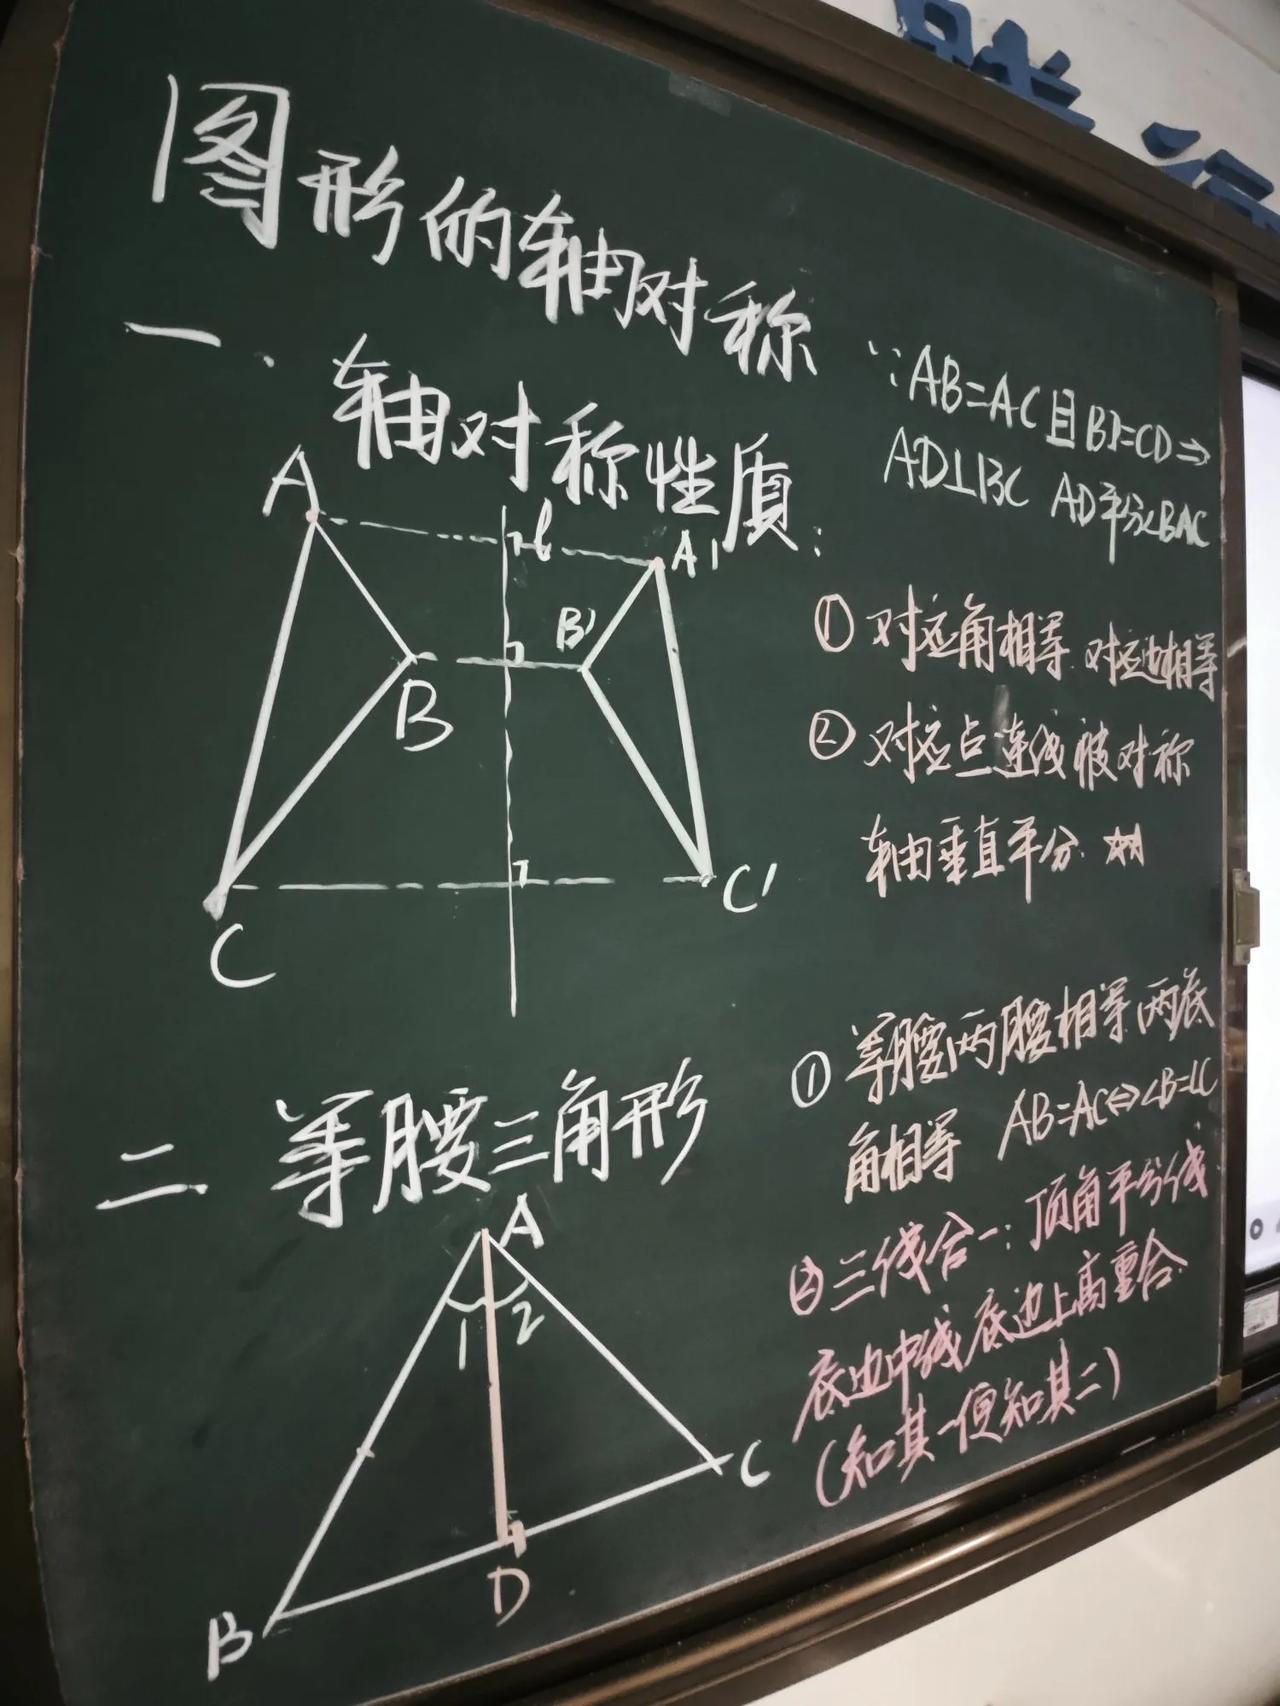 图形的轴对称
一、轴对称性质：
∵AB=AC且BD=CD⇒
AD⊥BC AD平分∠BAC
A
l
A'
B'
B
C
C'
①对应角相等 对应边相等
②对应点连线被对称
轴垂直平分 ☆☆
二 等腰三角形
A
1
2
B
D
C
①等腰两腰相等 两底
角相等 AB=AC⇔∠B=∠C
②三线合一：顶角平分线
底边中线 底边上高重合
（知其一便知其二）